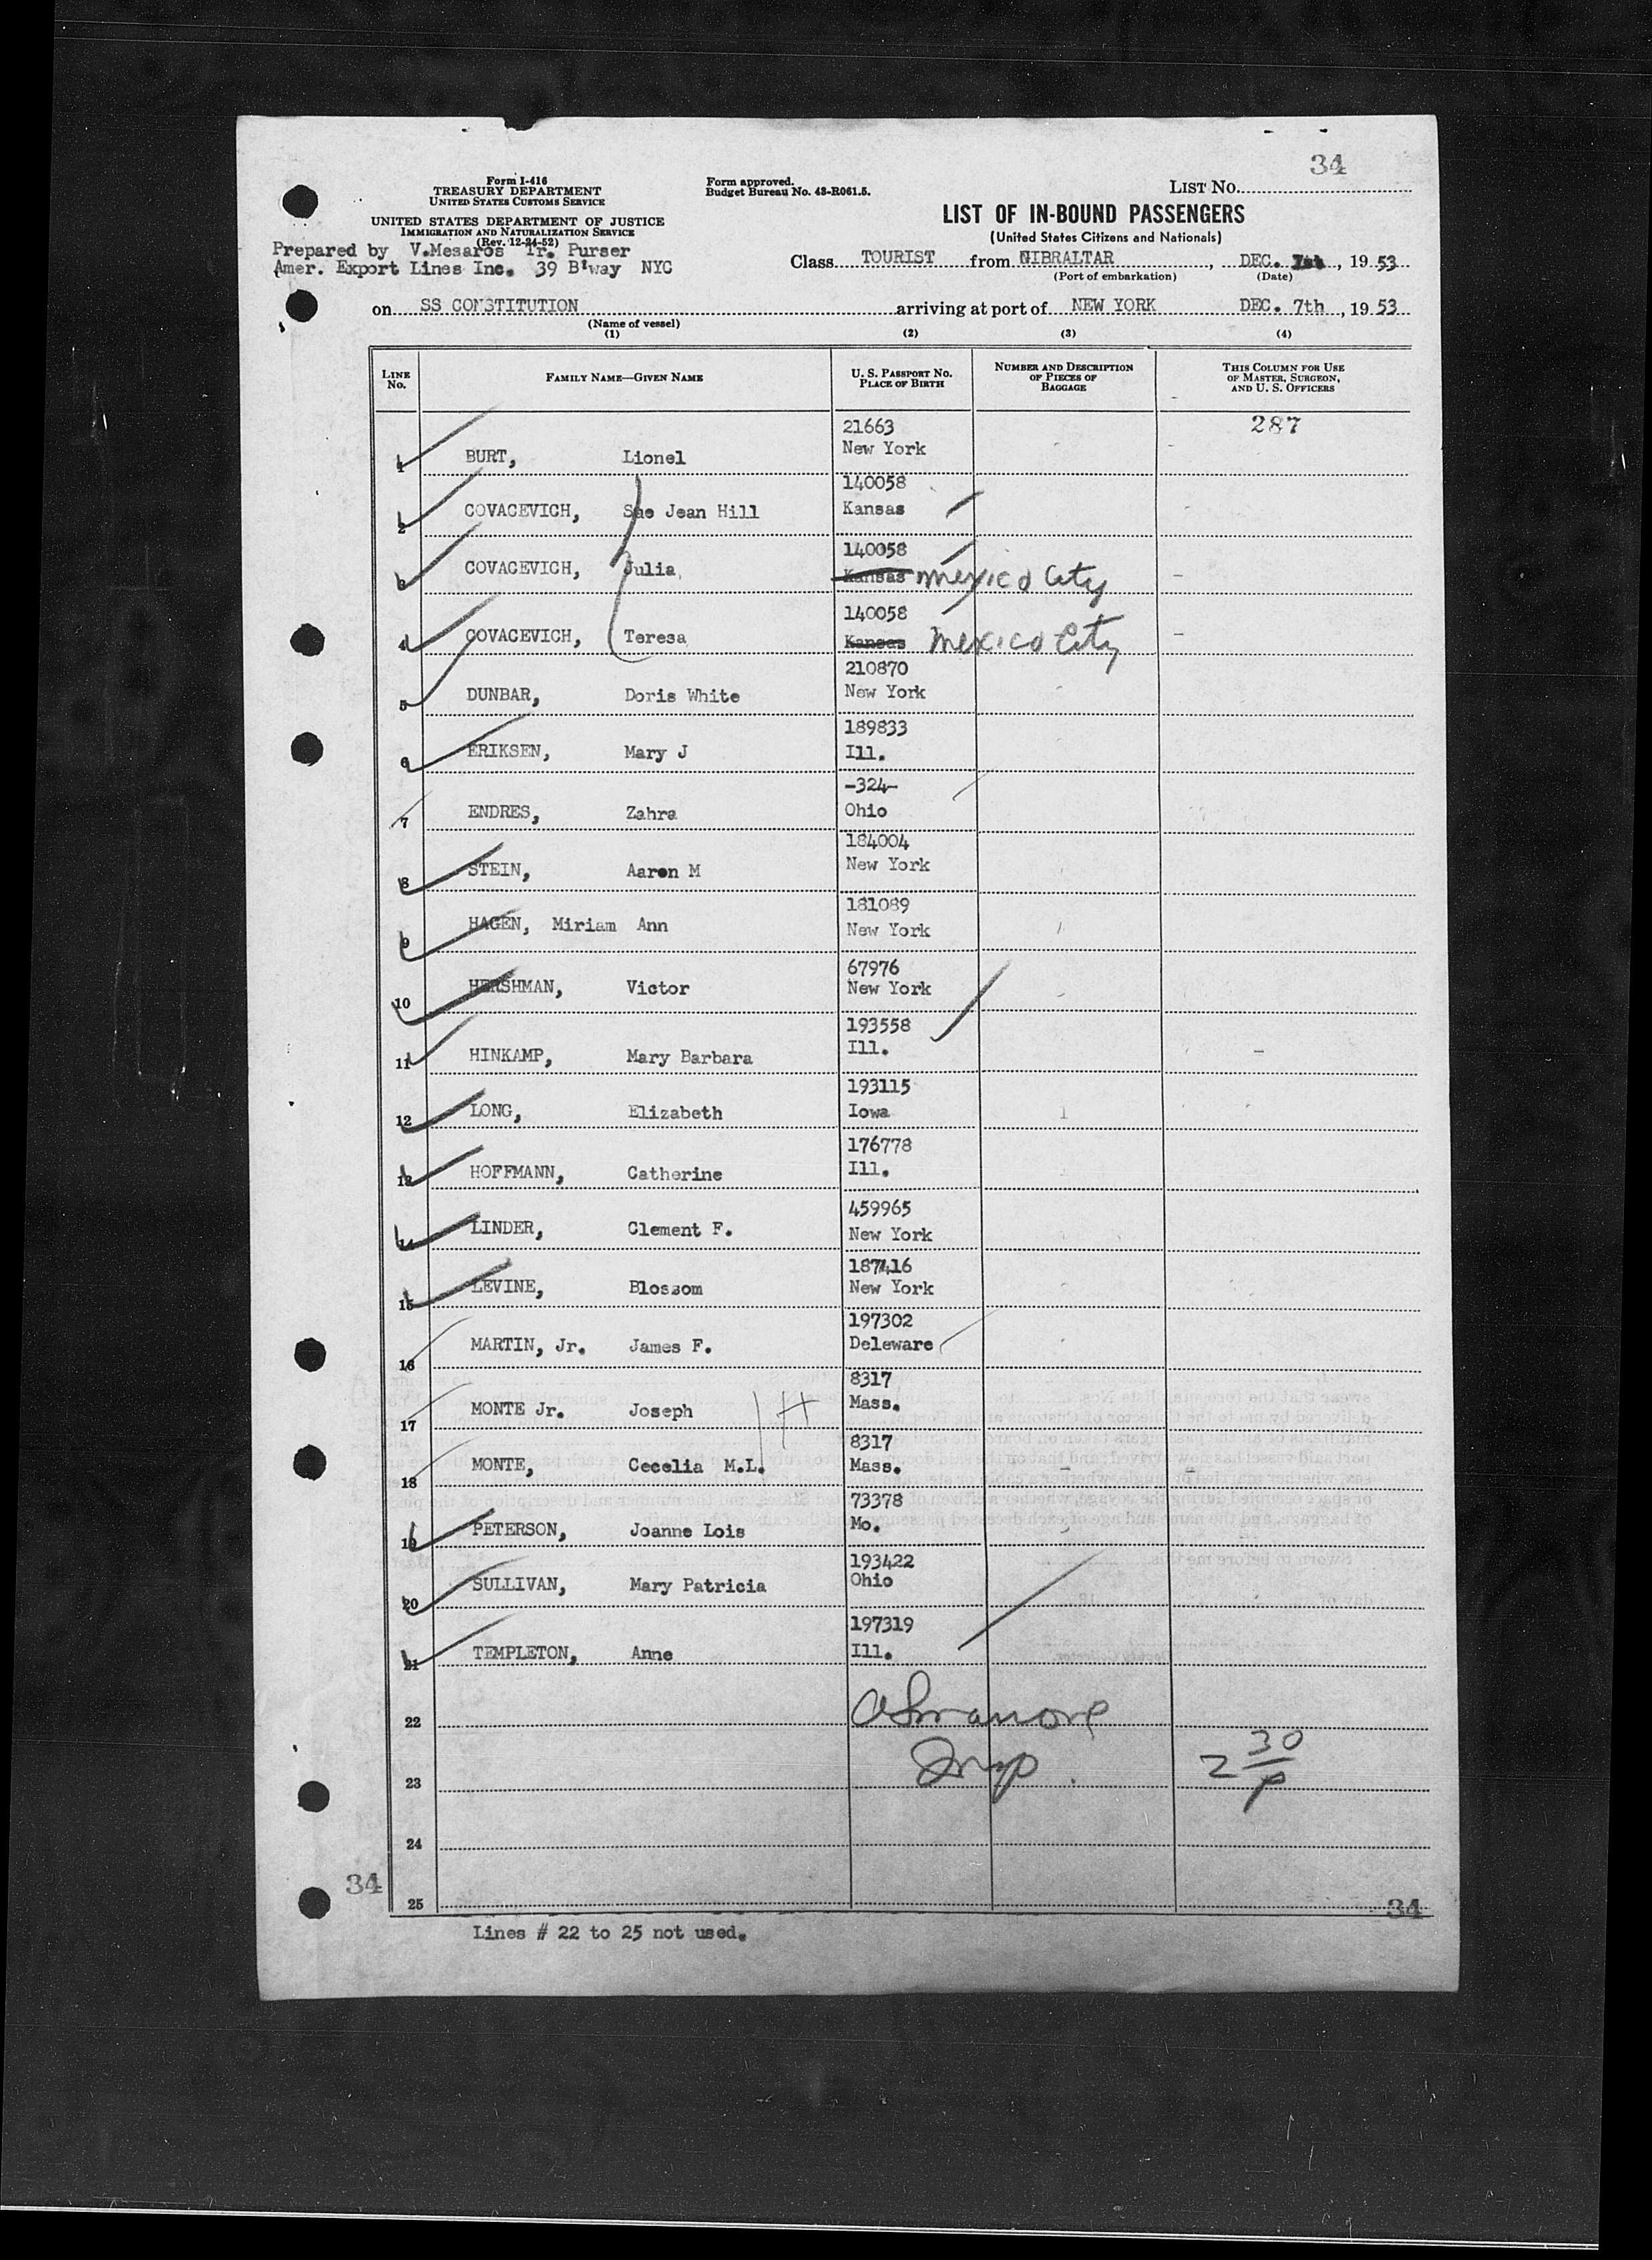 34
Form I-416
TREASURY DEPARTMENT
UNITED STATES CUSTOMS SERVICE
Form approved.
Budget Bureau No. 43-R061.5.
LIST No.
UNITED STATES DEPARTMENT OF JUSTICE
IMMIGRATION AND NATURALIZATION SERVICE
(Rev. 12-24-52)
LIST OF IN-BOUND PASSENGERS
(United States Citizens and Nationals)
Prepared by V.Mesaros Tr. Purser
Amer. Export Lines Inc. 39 B'way NYC
Class TOURIST from GIBRALTAR, DEC. 1st, 1953
(Port of embarkation) (Date)
on SS CONSTITUTION arriving at port of NEW YORK DEC. 7th, 1953
(Name of vessel)
(1) (2) (3) (4)
LINE No. FAMILY NAME—GIVEN NAME U. S. PASSPORT No. PLACE OF BIRTH NUMBER AND DESCRIPTION OF PIECES OF BAGGAGE THIS COLUMN FOR USE OF MASTER, SURGEON, AND U. S. OFFICERS
21663 287
1 BURT, Lionel New York
140058
2 COVACEVICH, Sue Jean Hill Kansas
140058
3 COVACEVICH, Julia Kansas Mexico City
140058
4 COVACEVICH, Teresa Kansas Mexico City
210870
5 DUNBAR, Doris White New York
189833
6 ERIKSEN, Mary J Ill.
-324-
7 ENDRES, Zahra Ohio
184004
8 STEIN, Aaron M New York
181089
9 HAGEN, Miriam Ann New York
67976
10 HERSHMAN, Victor New York
193558
11 HINKAMP, Mary Barbara Ill.
193115
12 LONG, Elizabeth Iowa
176778
13 HOFFMANN, Catherine Ill.
459965
14 LINDER, Clement F. New York
187416
15 LEVINE, Blossom New York
197302
16 MARTIN, Jr. James F. Deleware
8317
17 MONTE Jr. Joseph Mass.
8317
18 MONTE, Cecelia M.L. Mass.
73378
19 PETERSON, Joanne Lois Mo.
193422
20 SULLIVAN, Mary Patricia Ohio
197319
21 TEMPLETON, Anne Ill.
22
23 Insp. 2 30/P
24
34
25
34
Lines # 22 to 25 not used.